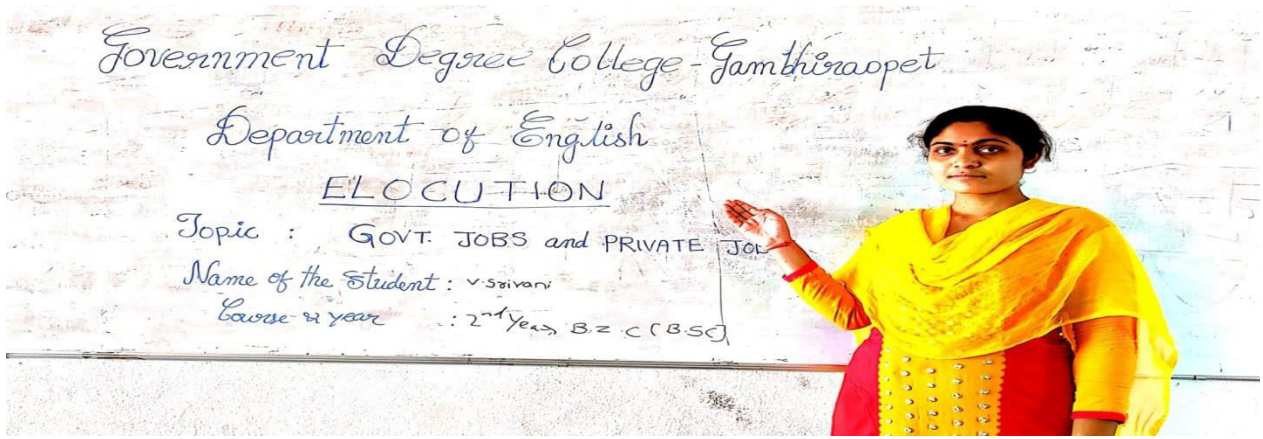 Government Degree College-Gambhiraopet
Department of English
ELOCUTION
Topic : GOVT. JOBS and PRIVATE JOB
Name of the Student : V.Srivani
Course & year : 2nd Year, B.Z.C (B.SC)